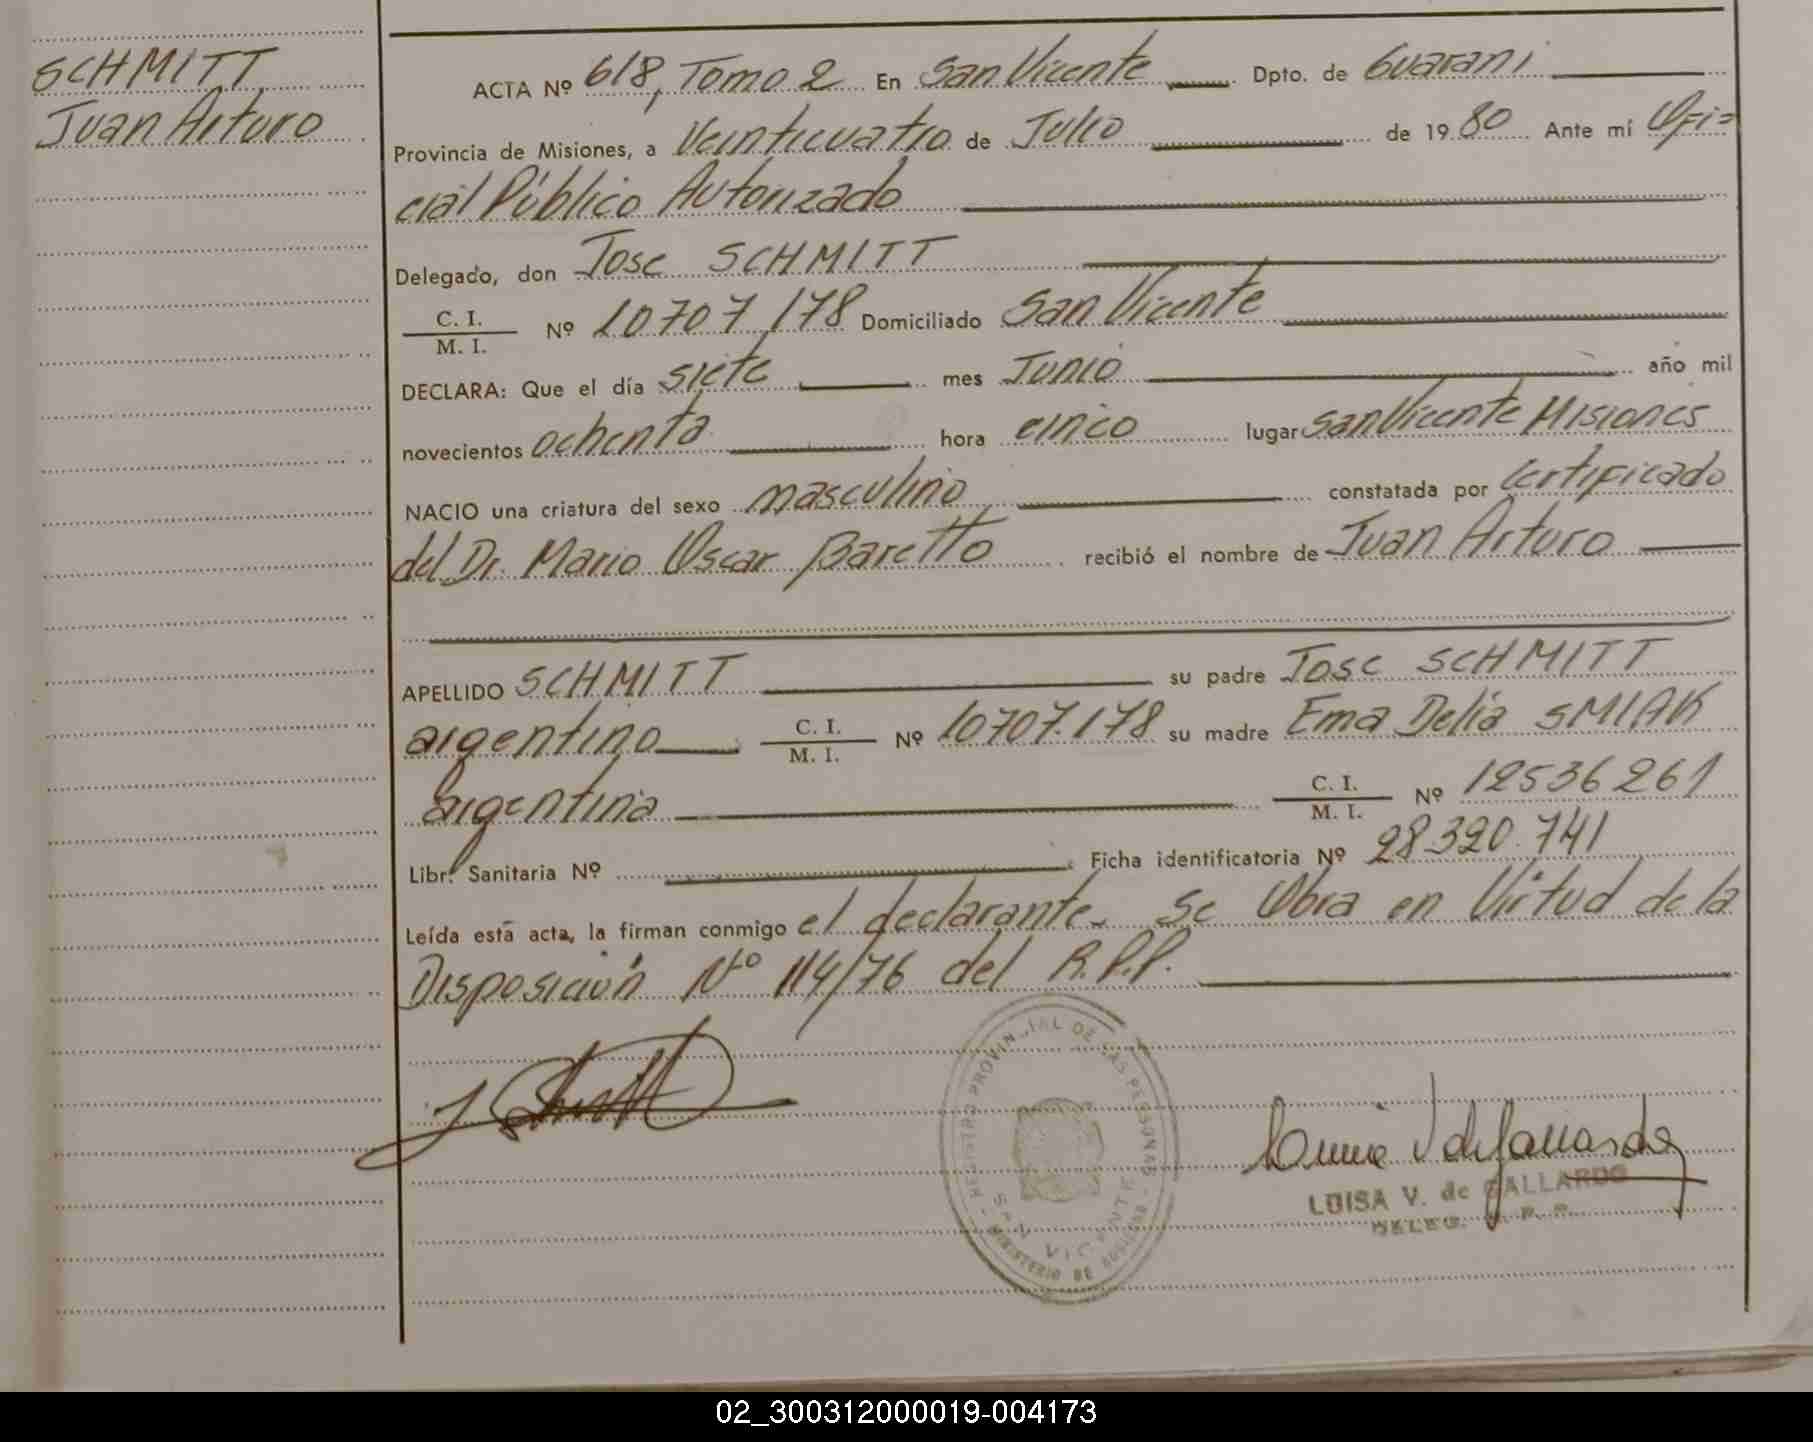 SCHMITT
Juan Arturo
ACTA Nº 618, Tomo 2 En San Vicente Dpto. de Guarani
Provincia de Misiones, a Veinticuatro de Julio de 1980 Ante mí Ofi=
cial Público Autorizado
Delegado, don Jose SCHMITT
C. I.
M. I.
Nº 10707,178 Domiciliado San Vicente
DECLARA: Que el día siete mes Junio año mil
novecientos ochenta hora cinco lugar San Vicente Misiones
NACIO una criatura del sexo masculino constatada por Certificado
del Dr. Mario Oscar Baretto recibió el nombre de Juan Arturo
APELLIDO SCHMITT su padre Jose SCHMITT
argentino C. I.
M. I.
Nº 10707.178 su madre Ema Delia SMIAK
argentina C. I.
M. I.
Nº 12536261
Libr. Sanitaria Nº Ficha identificatoria Nº 28.320.741
Leída esta acta, la firman conmigo el declarante. Se Obra en Virtud de la
Disposición Nto 114/76 del R.P.P.
REGISTRO PROVINCIAL DE LAS PERSONAS
SAN VICENTE
MINISTERIO DE
LUISA V. de GALLARDO
DELEG. R. P. P.
02_300312000019-004173